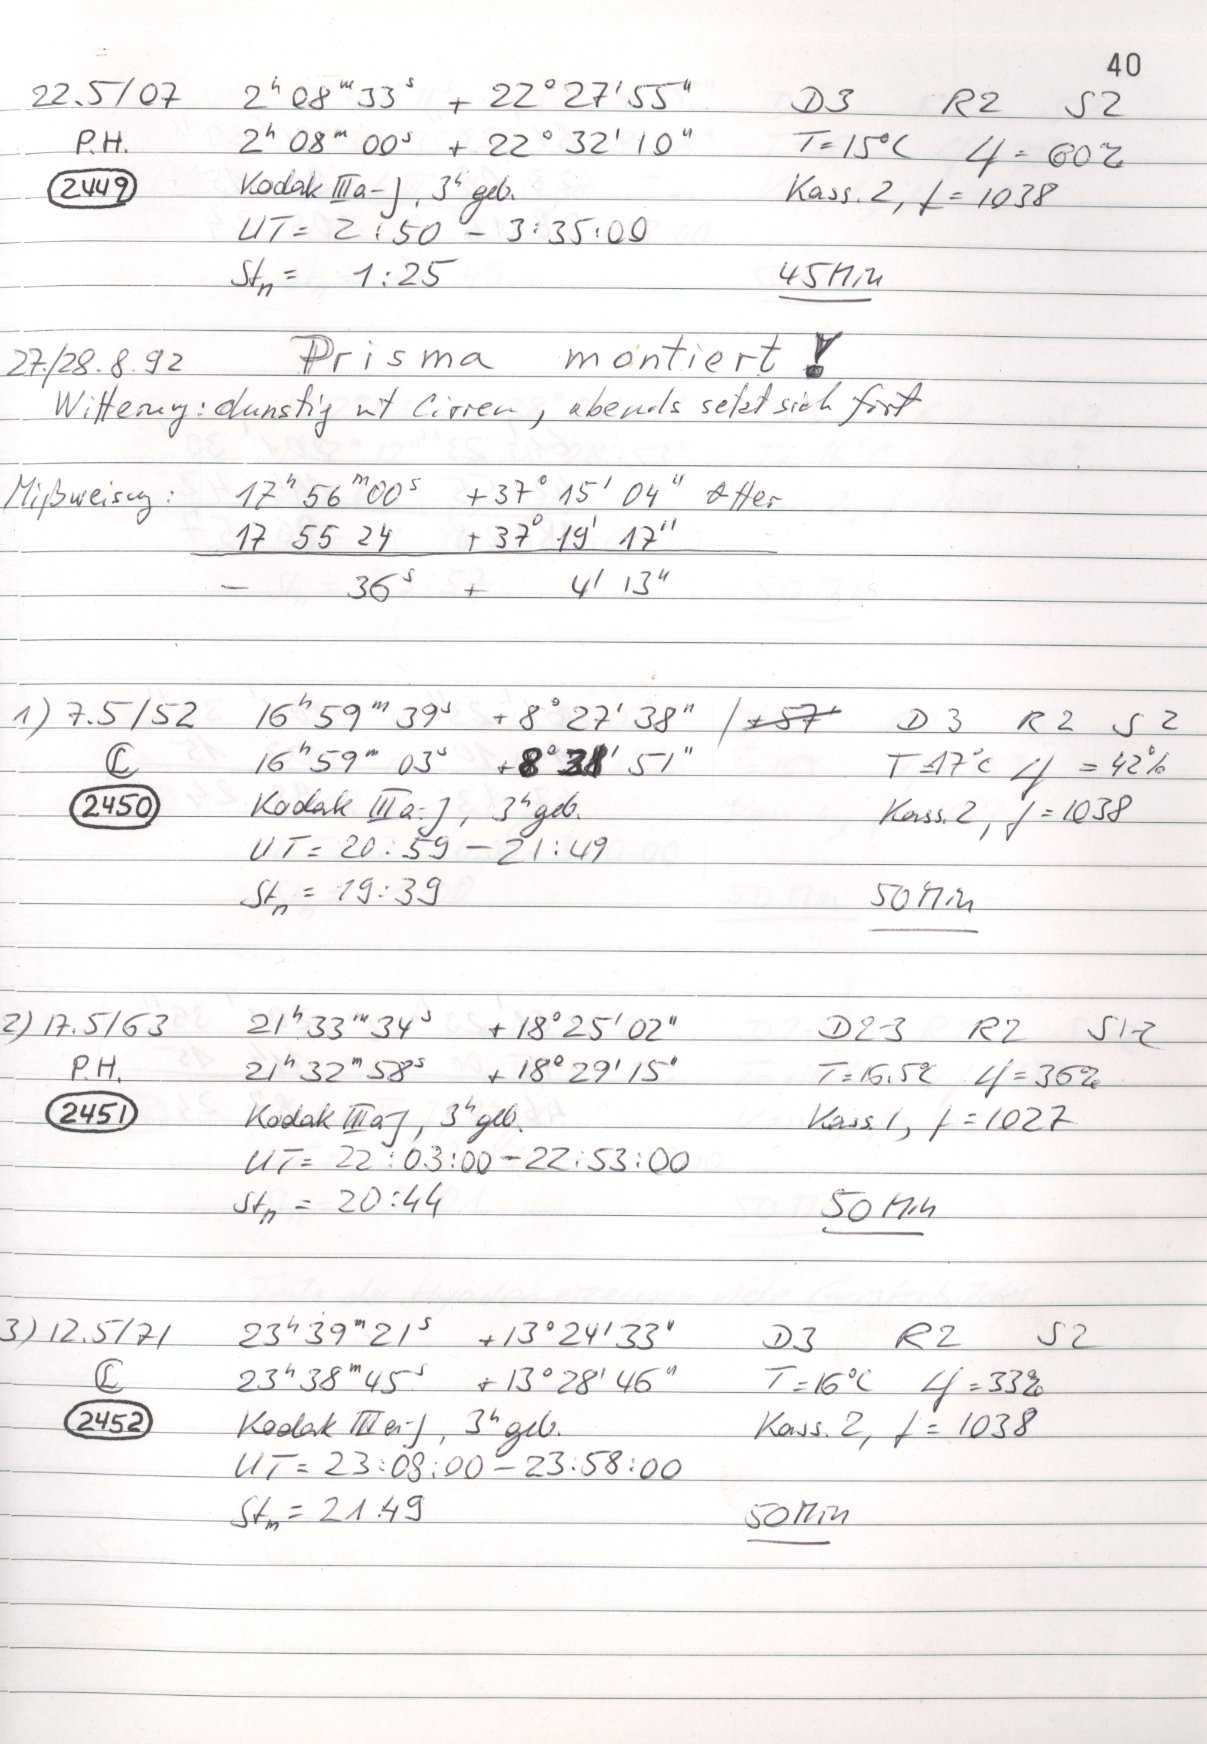 40
22.5/07 2ʰ08ᵐ33ˢ + 22°27'55" D3 R2 S2
P.H. 2ʰ08ᵐ00ˢ + 22°32'10" T=15°C φ=60%
2449 Kodak IIIa-J, 3ʰ geb. Kass. 2, f=1038
UT= 2:50 - 3:35:00
Stₙ= 1:25 45 Min
27./28.8.92 Prisma montiert!
Witterung: dunstig mit Cirren, abends setzt sich fort
Mißweisung: 17ʰ56ᵐ00ˢ +37°15'04" θ Her
17 55 24 +37°19'17"
- 36ˢ + 4'13"
1) 7.5/52 16ʰ59ᵐ39ˢ +8°27'38" /+57' D3 R2 S2
CL 16ʰ59ᵐ03ˢ +8°31'51" T=17°C φ=42%
2450 Kodak IIIa-J, 3ʰ geb. Kass. 2, f=1038
UT= 20:59 - 21:49
Stₙ= 19:39 50 Min
2) 17.5/63 21ʰ33ᵐ34ˢ +18°25'02" D2-3 R2 S1-2
P.H. 21ʰ32ᵐ58ˢ +18°29'15" T=16.5°C φ=36%
2451 Kodak IIIaJ, 3ʰ geb. Kass. 1, f=1027
UT= 22:03:00-22:53:00
Stₙ= 20:44 50 Min
3) 12.5/71 23ʰ39ᵐ21ˢ +13°24'33" D3 R2 S2
CL 23ʰ38ᵐ45ˢ +13°28'46" T=16°C φ=33%
2452 Kodak IIIa-J, 3ʰ geb. Kass. 2, f=1038
UT= 23:08:00-23:58:00
Stₘ= 21:49 50 Min